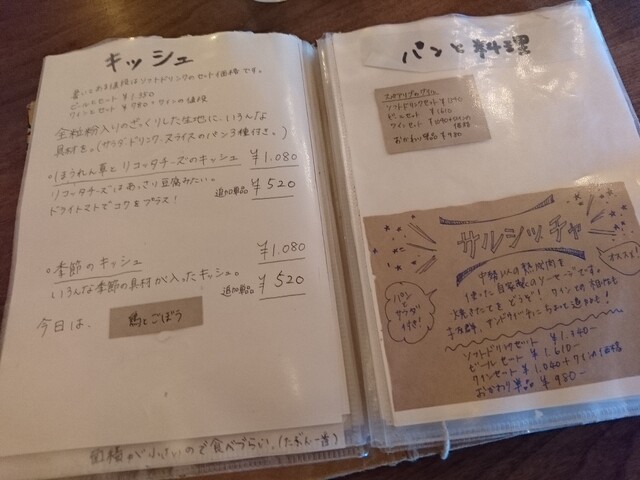 キッシュ
書いてある値段はソフトドリンクのセット価格です。
ビールセット ¥1,350
ワインセット ¥780+ワインの値段
全粒粉入りのざっくりした生地に、いろんな
具材を。(サラダ・ドリンク・スライスのパン3種付き。)
○ほうれん草とリコッタチーズのキッシュ ¥1,080
リコッタチーズはあっさり豆腐みたい。
追加単品 ¥520
ドライトマトでコクをプラス!
○季節のキッシュ ¥1,080
いろんな季節の具材が入ったキッシュ。
追加単品 ¥520
今日は、 鶏とごぼう
が小さいので食べづらい。(たぶん一番)
パンと料理
ソフトドリンクセット
ビールセット ¥1,610
ワインセット
おかわり単品 ¥980
サルシッチャ
オススメ!
パン
サラダ
付き!
使った自家製のソーセージです。
焼きたてをどうぞ!ワインとの相性も
ソフトドリンクセット ¥1,340-
ビールセット ¥1,610-
ワインセット ¥1,040+ワインの価格
おかわり単品 ¥980-